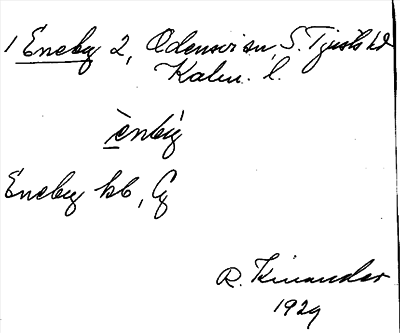 1 Eneby 2, Odensvi sn, S. Tjusts hd
Kalm. l.
ènbig
Eneby kb, G
R. Kinander
1929